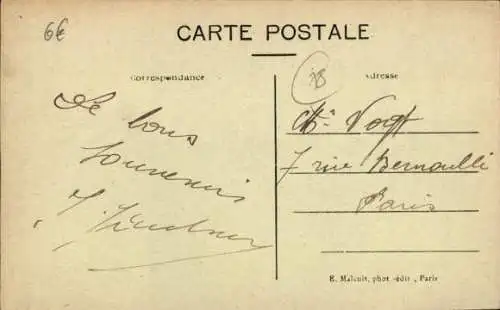 6€
CARTE POSTALE
Correspondance
Adresse
18
De bons
souvenirs
Vogt
7 rue Bernoulli
Paris
E. Malcuit, phot.-édit., Paris